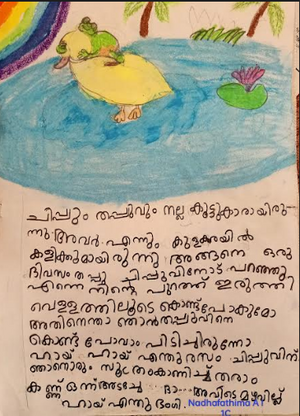 ചിപ്പും തപ്പുവും നല്ല കൂട്ടുകാരായിരു-
ന്നു. അവർ എന്നും കുളക്കരയിൽ
കളിക്കുമായിരുന്നു അങ്ങനെ ഒരു
ദിവസം തപ്പു ചിപ്പുവിനോട് പറഞ്ഞു
എന്നെ നിന്റെ പുറത്ത് ഇരുത്തി
വെള്ളത്തിലൂടെ കൊണ്ട്പോകുമോ
അതിനെന്താ ഞാൻതപ്പുവിനെ
കൊണ്ട് പോവാം പിടിച്ചിരുന്നോ
ഹായ് ഹായ് എന്തു രസം ചിപ്പുവിന്
ഞാനൊരു സൂത്രംകാണിച്ച് തരാം
കണ്ണ് ഒന്ന്അടച്ചേ ദാ... അവിടെ മഴവില്ല്
ഹായ് എന്തു ഭംഗി.
Nadhafathima A T
1C